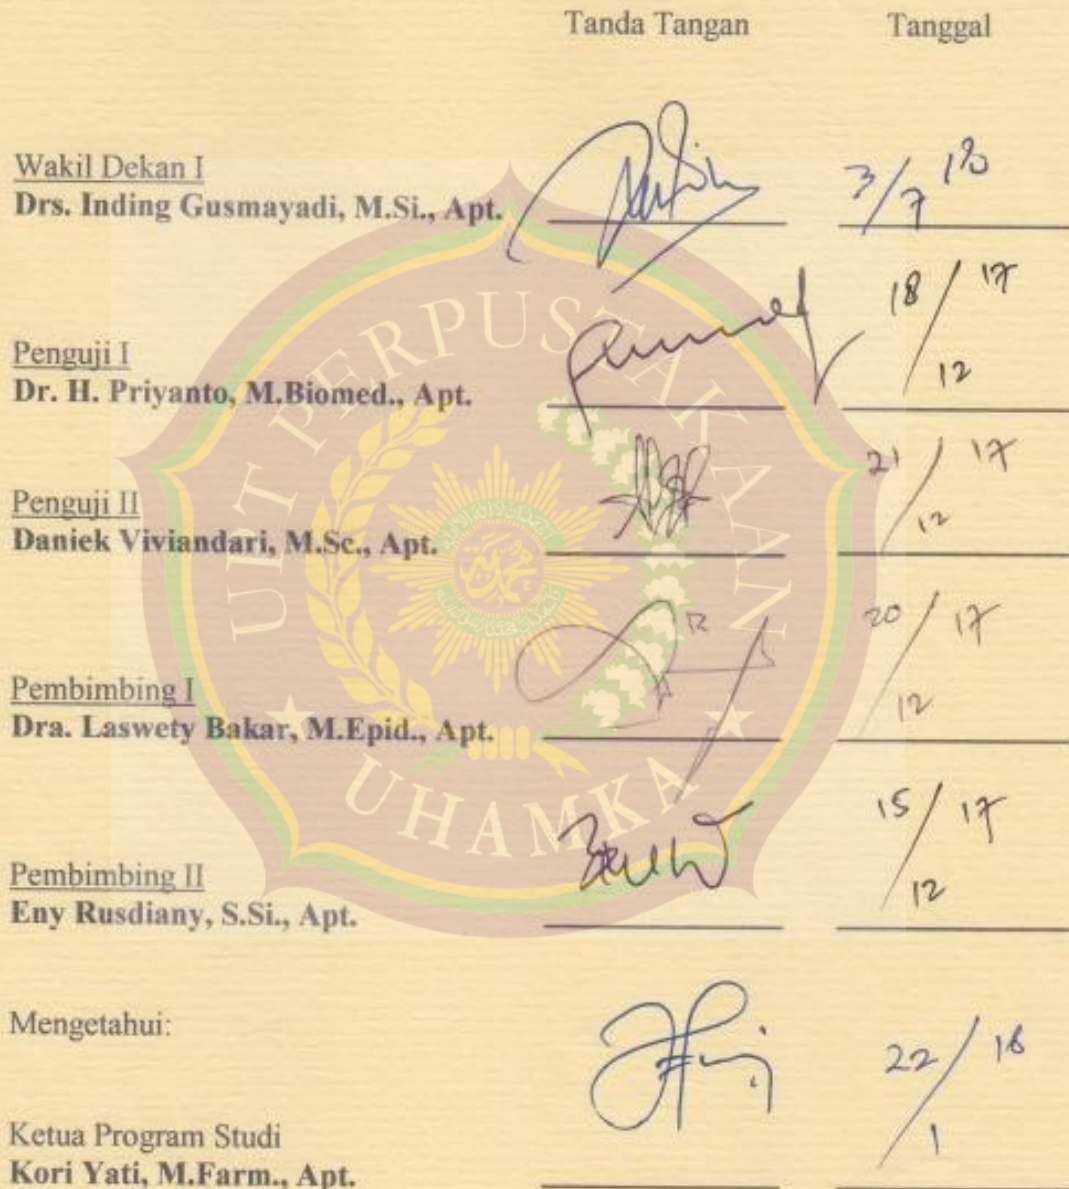 Tanda Tangan Tanggal
Wakil Dekan I
Drs. Inding Gusmayadi, M.Si., Apt. 3/7 18
Penguji I
Dr. H. Priyanto, M.Biomed., Apt. 18/12 17
Penguji II
Daniek Viviandari, M.Sc., Apt. 21/12 17
Pembimbing I
Dra. Laswety Bakar, M.Epid., Apt. 20/12 17
Pembimbing II
Eny Rusdiany, S.Si., Apt. 15/12 17
Mengetahui:
Ketua Program Studi
Kori Yati, M.Farm., Apt. 22/1 18
UPT PERPUSTAKAAN
UHAMKA